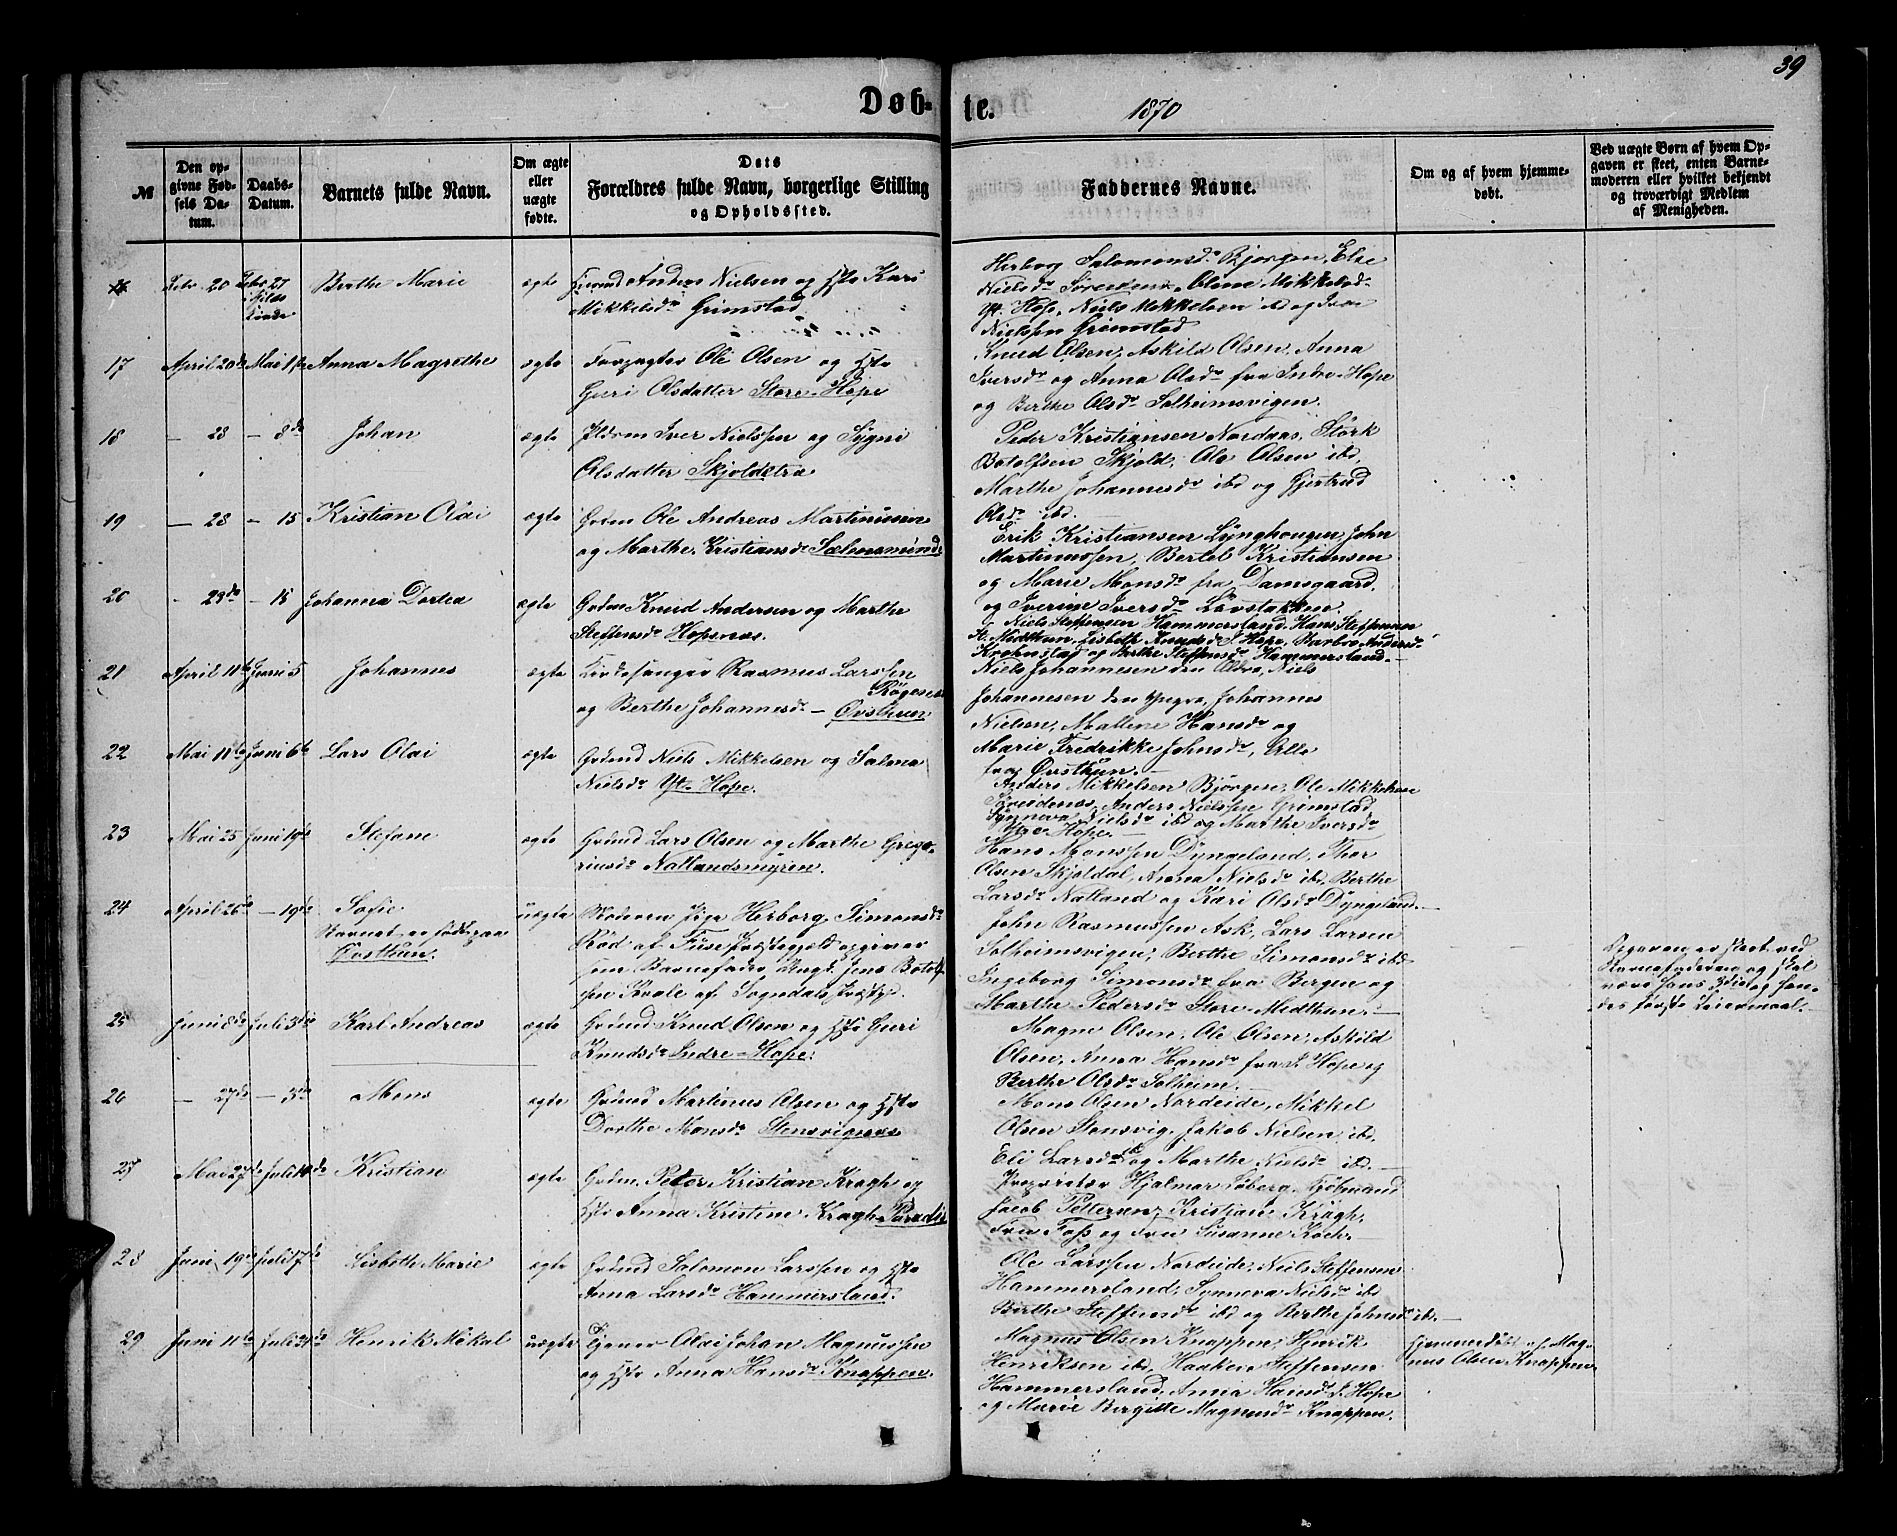 39
Døb- te. 1870
№
Den op-
givne Fød-
sels Da-
tum.
Daabs-
Datum.
Barnets fulde Navn.
Om ægte
eller
uægte
fødte.
Dets
Forældres fulde Navn, borgerlige Stilling
og Opholdssted.
Faddernes Navne.
Om og af hvem hjemme-
døbt.
Ved uægte Børn af hvem Op-
gaven er skeet, enten Barne-
moderen eller hvilket bekjendt
og troværdigt Medlem
af Menigheden.
Febr. 20 Febr 27 Berthe Marie ægte Anders Nielsen og Hst. Kari
Mikkelsdr Grimstad
Herborg Salomonsdr Bjørgen, Else
Nielsdr Olene Mikkelsdr
Yt. Hope, Niels Mikkelsen ibd og Iver
Nielssen Grimstad
17 April 20de Mai 1ste Anna Magrethe ægte Forpagter Ole Olsen og Hst.
Guri Olsdatter Store-Hope
Knud Olsen, Askild Olsen, Anna
Iversdr og Anna Olsdr fra Indre-Hope
og Berthe Olsdr Solheimsvigen.
18 — 23 — 8de Johan ægte Iver Nielssen og Sygni
Olsdatter Skjoldstra
Peder Kristiansen Nordaas, Størk
Botolfsen Skjold, Ole Olsen ibd,
Marthe Johannesdr ibd og Gjertrud
Olsdr ibd.
19 — 23 — 15 Kristian Olai ægte Grdm Ole Andreas Martinussen
og Marthe Kristiansdr Sælensminde
Erik Kristiansen Lynghougen, John
Martinussen, Bertel Kristiansen
og Marie Monsdr fra Damsgaard,
og Iverine Iversdr Løvstakken.
20 - 23de — 15 Johanna Dortea ægte Grdm Knud Andersen og Marthe
Steffensdr Hopsnæs.
Niels Steffensen Hammersland, Hans Steffensen
St. Midthun, Lisbeth Knudsdr I. Hope, Barbro Andersdr
Krohnstad og Berthe Steffensdr Hammersland.
21 April 11te Juni 5 Johannes ægte Kirkesanger Rasmus Larssen
Røgenes
og Berthe Johannesdr — Øvsthun.
Niels Johannesen den Ældre, Niels
Johannesen den Yngre, Johannes
Nielsen, Mallene Hansdr og
Marie Fredrikke Johnsdr, Alle
fra Øvsthun.—
22 Mai 11te Juni 6te Lars Olai ægte Grdmd Niels Mikkelsen og Salma
Nielsdr Yt. Hope.
Anders Mikkelsen Bjørgen, Ole Mikkelsen
Anders Nielssen Grimstad
Synneva Nielsdr ibd og Marthe Iversdr
Ytre Hope.—
23 Mai 25 Juni 19de Stefane ægte Grdmd Lars Olsen og Marthe Grego-
riusdr Natlandsmyren.
Hans Monssen Dyngeland, Thor
Olsen Skjoldal, Anna Nielsdr ibd, Berthe
Larsdr Natland og Kari Olsdr Dyngeland.—
24 April 26de — 19de Sofie uægte Moderen Pige Herborg Simonsdr
Barnet er født paa
Øvsthun.
Rød af Fuse Præstegjeld opgiver
som Barnefader, Ungk. Jens Botolf-
sen Kvale af Sogndals Præstgj.
John Rasmussen Ask, Lars Larsen
Solheimsvigen, Berthe Simonsdr ibd
Ingeborg Simonsdr fra Bergen og
Marthe Pedersdr Store-Midthun.—
Opgaven er skeet ved
Barnefaderen og skal
være hans 3die og hen-
des første Leiermaal.
25 Juni 8de Juli 3die Karl Andreas ægte Grdmd Knud Olsen og Hst. Guri
Knudsdr Indre-Hope.
Magne Olsen, Ole Olsen, Askild
Olsen, Anna Hansdr fra I. Hope og
Berthe Olsdr Solheim.—
26 — 27de — 3die Mons ægte Grdmd Martinus Olsen og Hst.
Dorthe Monsdr Stensvignæs
Mons Olsen Nordeide, Mikkel
Olsen Stensvig, Jakob Nielsen ibd,
Eli Larsdr ibd og Marthe Nielsdr ibd.—
27 Mai 27de Juli 10de Kristian ægte Grdm. Peter Kristian Kragh og
Hst. Anna Kristine Kragh Paradis
Proprietær Hjalmar Løberg, Kjøbmand
Jacob Pettersen, Kristian Krogh,
Fru Foss og Fru Susanne Koch.—
28 Juni 19de Juli 17de Lisbeth Marie ægte Grdmd Salomon Larssen og Hst.
Anna Larsdr Hammersland.
Ole Larssen Nordeide, Niels Steffensen
Hammersland, Synneva Nielsdr ibd
Berthe Steffensdr ibd og Berthe Johnsdr ibd.—
29 Juni 11te Juli 31te Henrik Mikal uægte Tjener Olai Johan Magnussen
og Hst. Anna Hansdr Knappen.
Magnus Olsen Knappen, Henrik
Henriksen ibd, Haaken Steffensen
Hammersland, Anna Hansdr I. Hope
og Marie Bergitte Magnusdr Knappen.
Hjemmedøbt af Mag-
nus Olsen Knappen